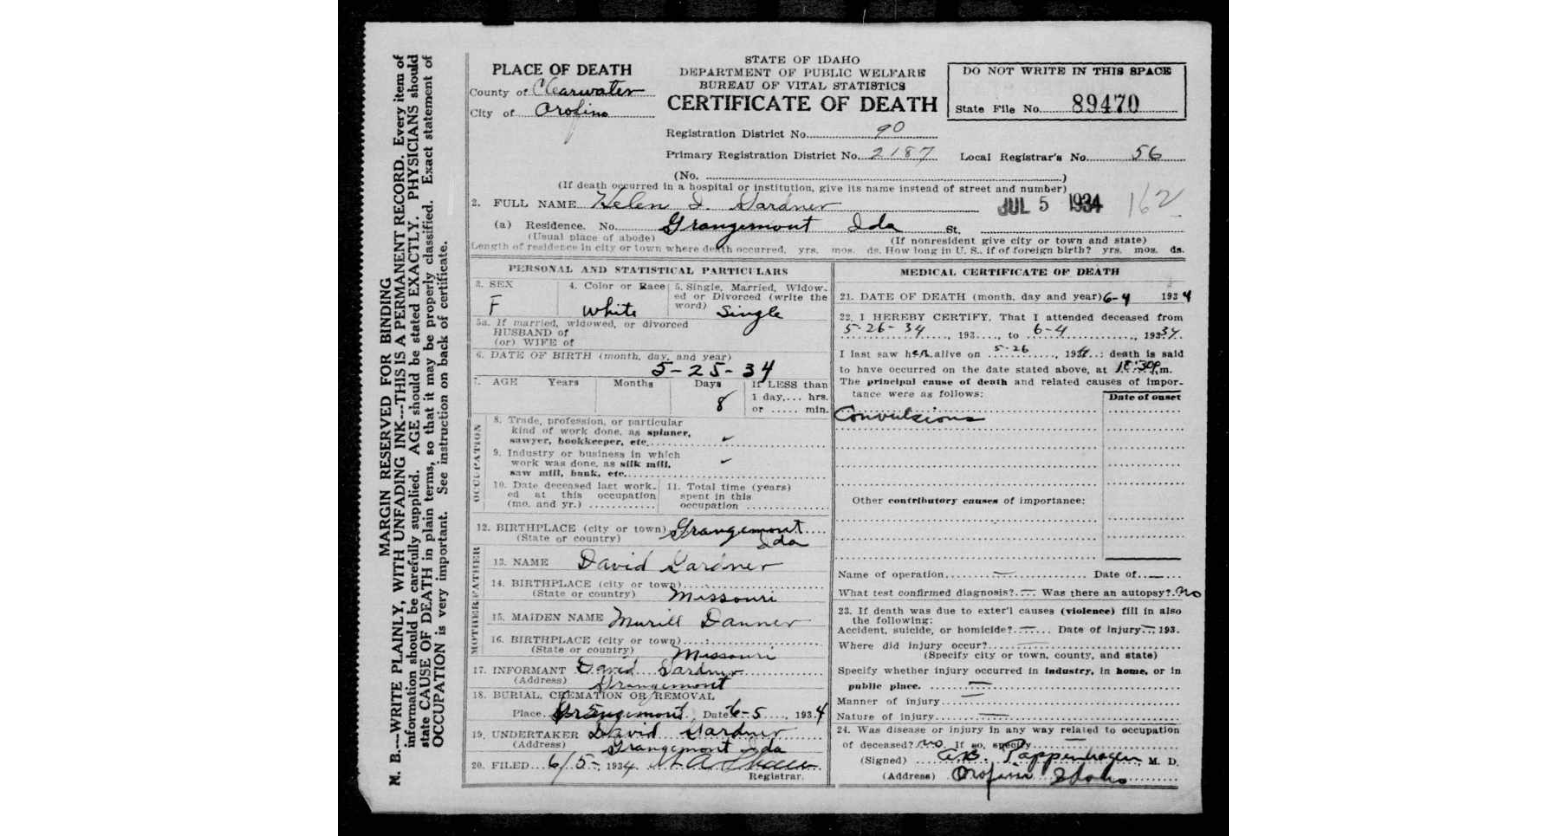 MARGIN RESERVED FOR BINDING
N. B.---WRITE PLAINLY, WITH UNFADING INK---THIS IS A PERMANENT RECORD. Every item of
information should be carefully supplied. AGE should be stated EXACTLY. PHYSICIANS should
state CAUSE OF DEATH in plain terms, so that it may be properly classified. Exact statement of
OCCUPATION is very important. See instruction on back of certificate.
PLACE OF DEATH
County of Clearwater
City of Orofino
STATE OF IDAHO
DEPARTMENT OF PUBLIC WELFARE
BUREAU OF VITAL STATISTICS
CERTIFICATE OF DEATH
DO NOT WRITE IN THIS SPACE
State File No. 89470
Registration District No. 90
Primary Registration District No. 2187 Local Registrar's No. 56
(No. )
(If death occurred in a hospital or institution, give its name instead of street and number)
2. FULL NAME Helen I. Gardner JUL 5 1934 162
(a) Residence. No. Grangemont Ida St.
(Usual place of abode) (If nonresident give city or town and state)
Length of residence in city or town where death occurred, yrs. mos. ds. How long in U. S., if of foreign birth? yrs. mos. ds.
PERSONAL AND STATISTICAL PARTICULARS
3. SEX
F
4. Color or Race
White
5. Single, Married, Widow-
ed or Divorced (write the
word) Single
5a. If married, widowed, or divorced
HUSBAND of
(or) WIFE of
6. DATE OF BIRTH (month, day, and year)
5-25-34
7. AGE Years Months Days If LESS than
8 1 day,... hrs.
or ..... min.
OCCUPATION
8. Trade, profession, or particular
kind of work done, as spinner,
sawyer, bookkeeper, etc.
9. Industry or business in which
work was done, as silk mill,
saw mill, bank, etc.
10. Date deceased last work-
ed at this occupation
(mo. and yr.)
11. Total time (years)
spent in this
occupation
12. BIRTHPLACE (city or town) Grangemont
(State or country) Ida
FATHER
13. NAME David Gardner
14. BIRTHPLACE (city or town)
(State or country) Missouri
MOTHER
15. MAIDEN NAME Murill Danner
16. BIRTHPLACE (city or town)
(State or country) Missouri
17. INFORMANT David Gardner
(Address) Grangemont
18. BURIAL, CREMATION OR REMOVAL
Place Grangemont Date 6-5, 1934
19. UNDERTAKER David Gardner
(Address) Grangemont Ida
20. FILED 6/5-, 1934
Registrar.
MEDICAL CERTIFICATE OF DEATH
21. DATE OF DEATH (month, day and year) 6-4 1934
22. I HEREBY CERTIFY, That I attended deceased from
5-26-34, 193..., to 6-4, 1934.
I last saw her alive on 5-26, 1934; death is said
to have occurred on the date stated above, at m.
The principal cause of death and related causes of impor-
tance were as follows:
Date of onset
Convulsions
Other contributory causes of importance:
Name of operation Date of
What test confirmed diagnosis? Was there an autopsy? No
23. If death was due to exter'l causes (violence) fill in also
the following:
Accident, suicide, or homicide? Date of injury 193.
Where did injury occur?
(Specify city or town, county, and state)
Specify whether injury occurred in industry, in home, or in
public place.
Manner of injury
Nature of injury
24. Was disease or injury in any way related to occupation
of deceased? No If so, specify
(Signed) A.B. Pappenhagen M. D.
(Address) Orofino Idaho